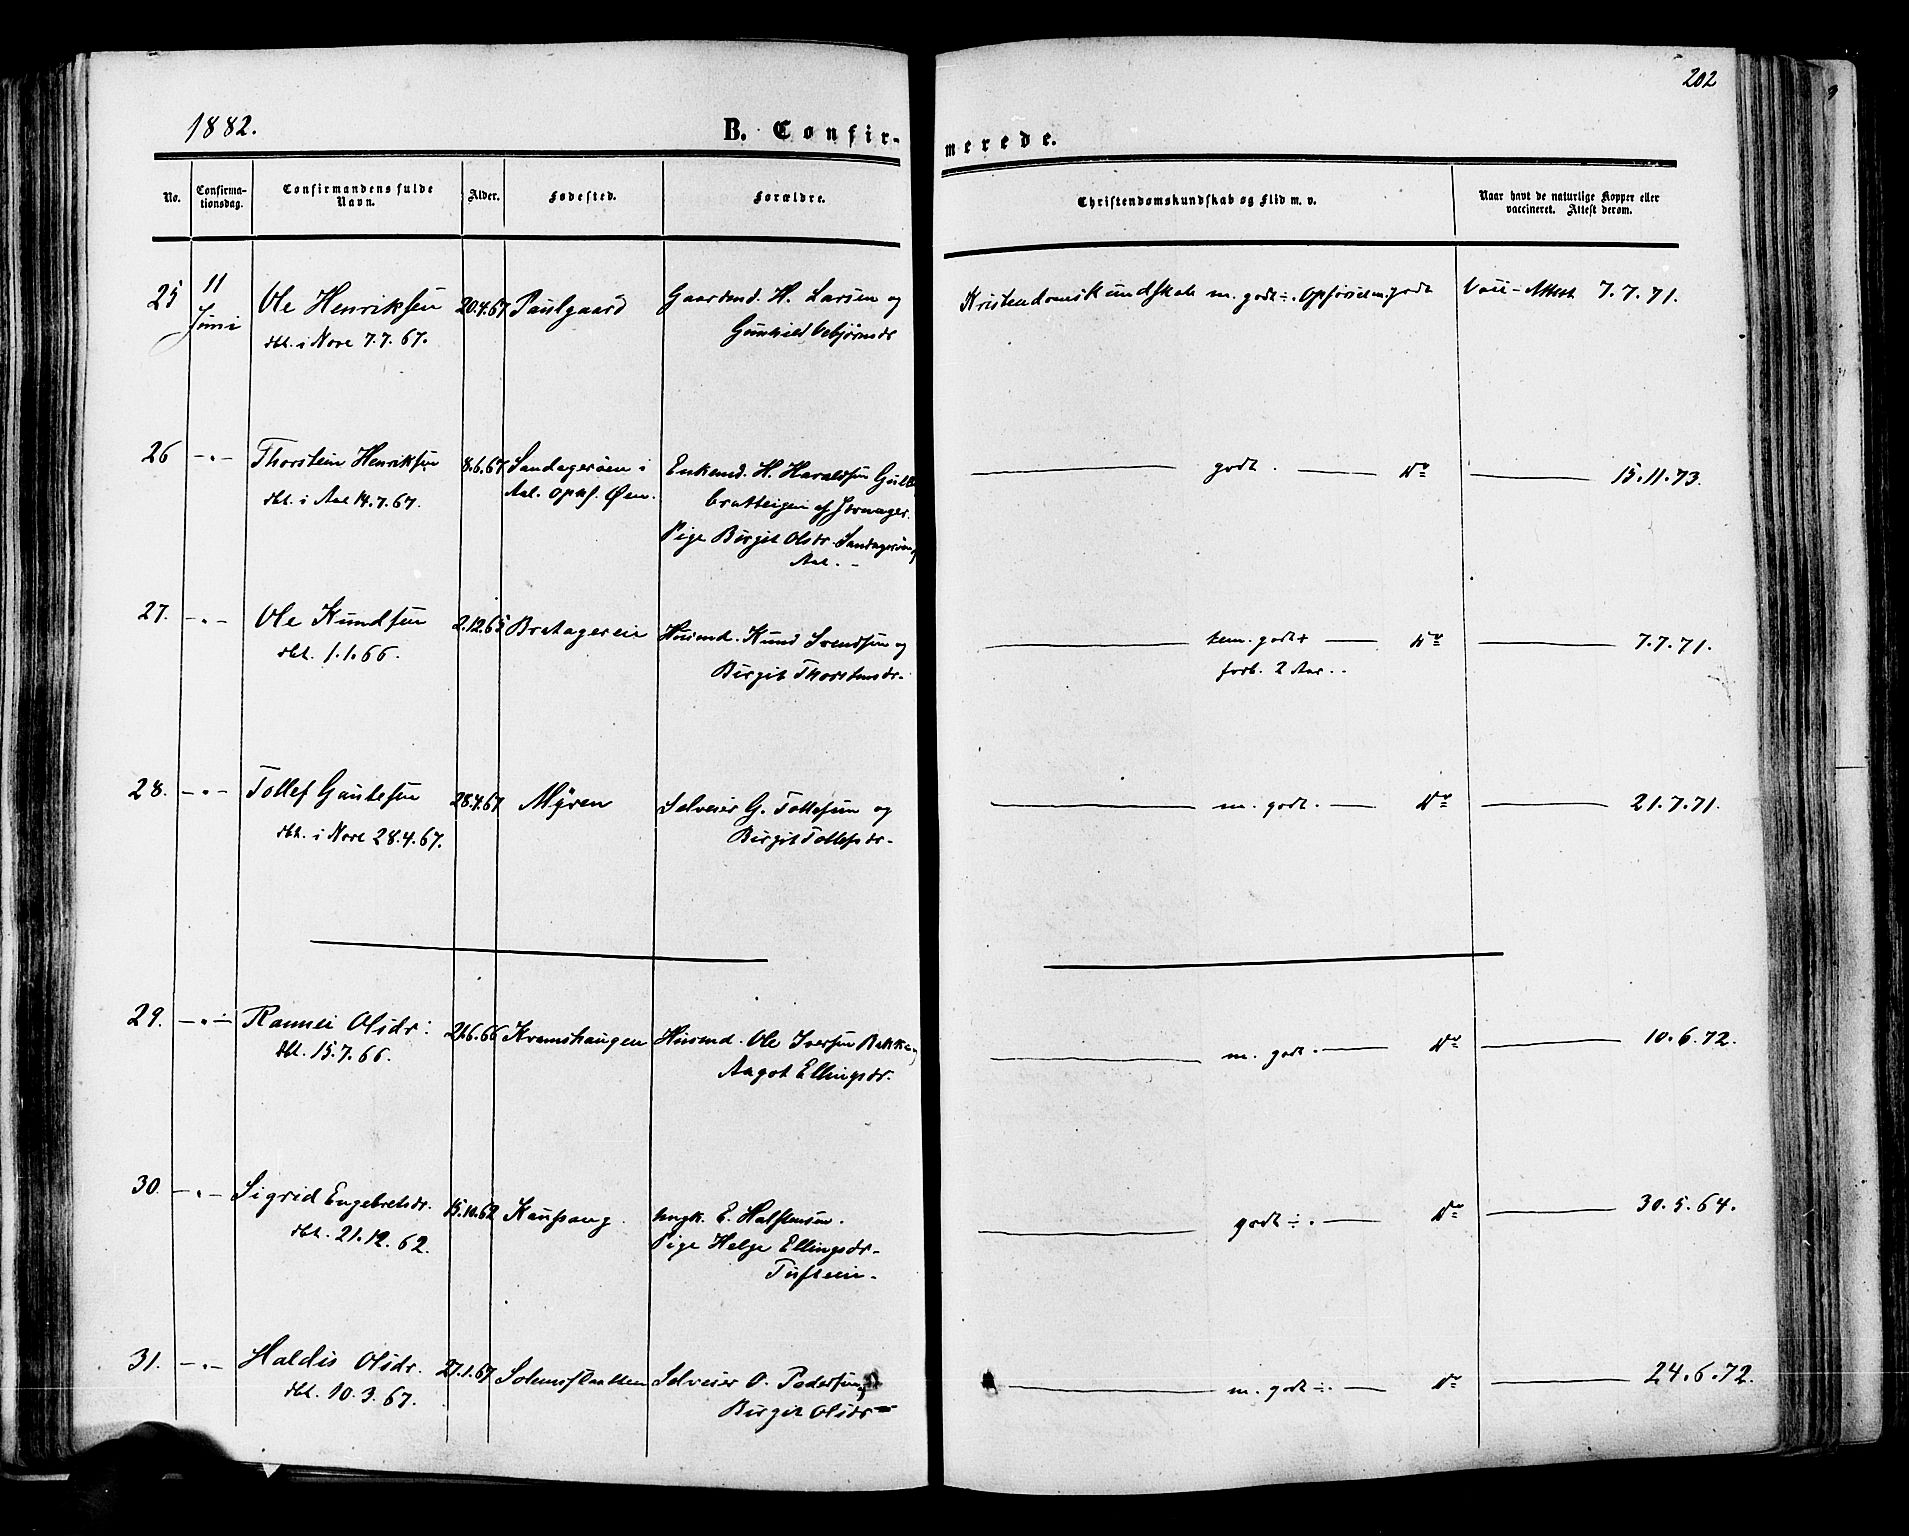 202
1882.
B. Confir-
merede.
No.
Confirma-
tionsdag.
Confirmandens fulde
Navn.
Alder.
Fødested.
Forældre.
Christendomskundskab og Flid m. v.
Naar havt de naturlige Kopper eller
vaccineret. Attest derom.
25 11 Juni Ole Henriksen 20.4.67 Paulgaard Gaardmd. H. Larsen og Kristendomskundskab m. godt ÷. Opførsel m. godt Vac-Attest 7.7.71.
dbt. i Nore 7.7.67. Gunhild Vebjørnsdr
26 -„- Thorstein Henriksen 8.6.67 Sandagerøen i Enkemd. H. Haraldsen godt. Do 15.11.73.
dbt. i Aal 14.7.67. Aal. opaf. Øen. bratteigen af
Pige Birgit Olsdr. Sandagerøen,
Aal.
27. -„- Ole Knudsen 2.12.65 Bratagereie Husmd. Knud Svendsen og tem. godt + Do 7.7.71.
dbt. 1.1.66. Birgit Thorstensdr. forb. 2 Aar.
28. -„- Tollef Gautesen 28.4.67 Myren Selveier G. Tollefsen og m. godt. Do 21.7.71.
dbt. i Nore 28.4.67. Birgit Tollefsdr.
29. -„- Rannei Olsdr: 21.6.66 Kramshaugen Husmd. Ole Iversen Bakke, m. godt. Do 10.6.72.
dbt. 15.7.66. Aagot Ellingsdr.
30. -„- Sigrid Engebretsdr. 15.10.62 Kaupang. Ungk. E. Halstensen. godt ÷. Do 30.5.64.
dbt. 21.12.62. Pige Helge Ellingsdr.
Tufteeie.
31. -„- Haldis Olsdr. 27.1.67 Solemsflaatten Selveier O. Pedersen, m. godt ÷. Do 24.6.72.
dbt. 10.3.67. Birgit Olsdr